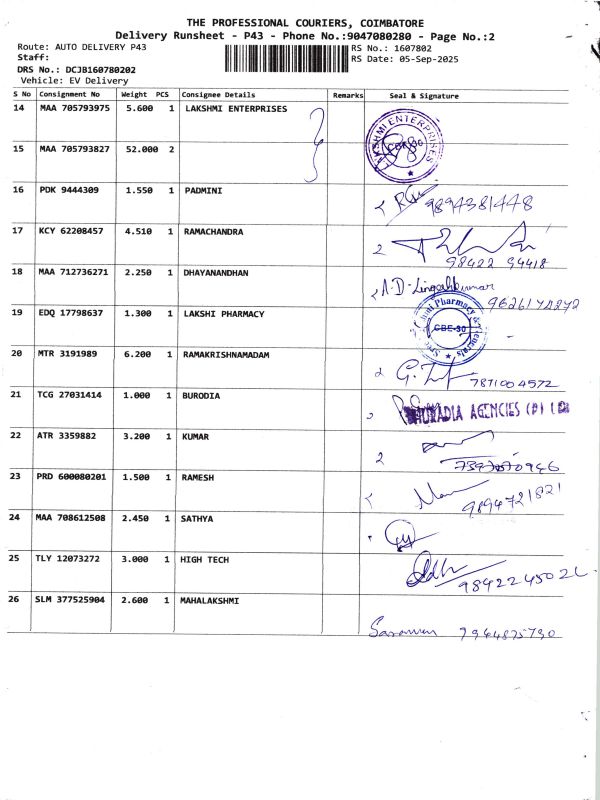 THE PROFESSIONAL COURIERS, COIMBATORE
Delivery Runsheet - P43 - Phone No.:9047080280 - Page No.:2
Route: AUTO DELIVERY P43 RS No.: 1607802
Staff: RS Date: 05-Sep-2025
DRS No.: DCJB160780202
Vehicle: EV Delivery
S No Consignment No Weight PCS Consignee Details Remarks Seal & Signature
14 MAA 705793975 5.600 1 LAKSHMI ENTERPRISES
LAKSHMI ENTERPRISES CBE-30
15 MAA 705793827 52.000 2
16 PDK 9444309 1.550 1 PADMINI
9894381448
17 KCY 62208457 4.510 1 RAMACHANDRA
98422 94418
18 MAA 712736271 2.250 1 DHAYANANDHAN
A.D-Lingeshkumar
19 EDQ 17798637 1.300 1 LAKSHI PHARMACY
Pharmacy & Generals CBE-30
20 MTR 3191989 6.200 1 RAMAKRISHNAMADAM
7871004572
21 TCG 27031414 1.000 1 BURODIA
AGENCIES (P)
22 ATR 3359882 3.200 1 KUMAR
23 PRD 600080201 1.500 1 RAMESH
9894721821
24 MAA 708612508 2.450 1 SATHYA
25 TLY 12073272 3.000 1 HIGH TECH
26 SLM 377525904 2.600 1 MAHALAKSHMI